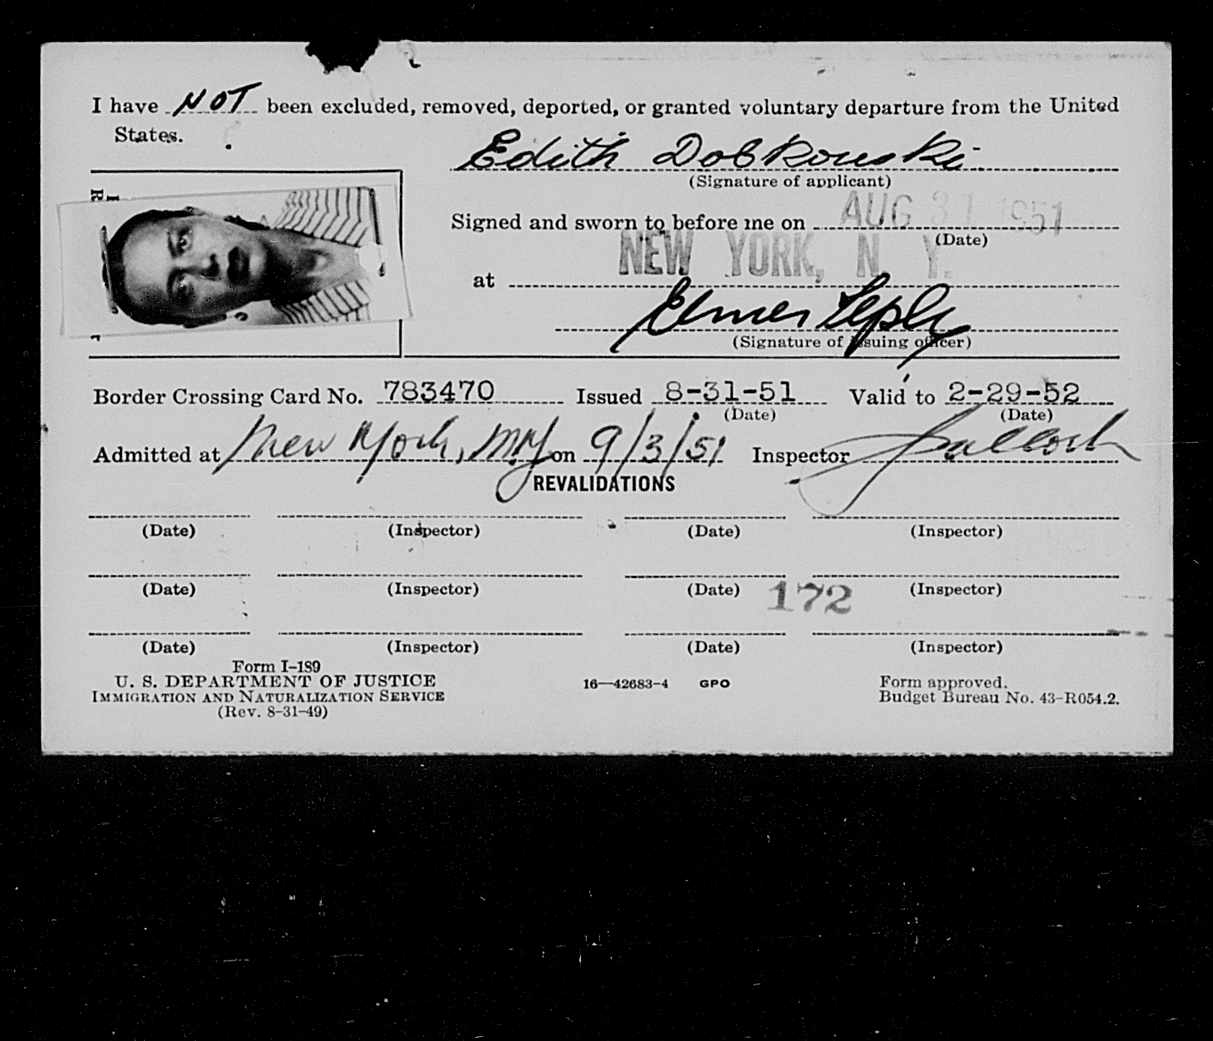 I have NOT been excluded, removed, deported, or granted voluntary departure from the United
States.
Edith Dobkouski
(Signature of applicant)
Signed and sworn to before me on AUG 31 1951
(Date)
at NEW YORK, N Y.
Elmer
(Signature of issuing officer)
Border Crossing Card No. 783470 Issued 8-31-51 Valid to 2-29-52
(Date) (Date)
Admitted at New York, NY on 9/3/51 Inspector
REVALIDATIONS
(Date) (Inspector) (Date) (Inspector)
(Date) (Inspector) (Date) 172 (Inspector)
(Date) (Inspector) (Date) (Inspector)
Form I-189
U. S. DEPARTMENT OF JUSTICE
IMMIGRATION AND NATURALIZATION SERVICE
(Rev. 8-31-49)
16—42683-4 GPO
Form approved.
Budget Bureau No. 43-R054.2.